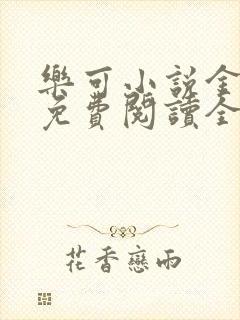 樂可小說全
免費閱讀全
花香戀雨